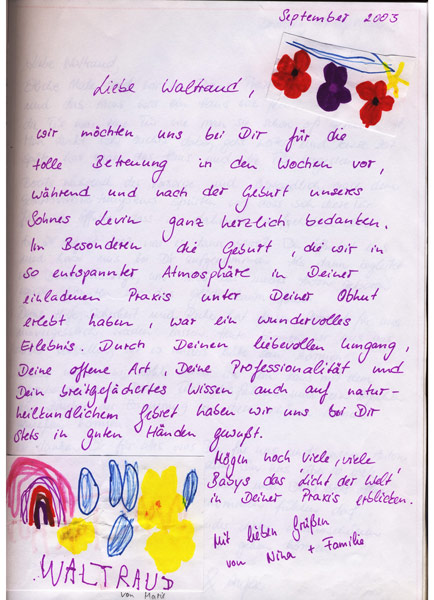 September 2003
Liebe Waltraud,
wir möchten uns bei Dir für die
tolle Betreuung in den Wochen vor,
während und nach der Geburt unseres
Sohnes Levin ganz herzlich bedanken.
Im Besonderen die Geburt, die wir in
so entspannter Atmosphäre in Deiner
einladenen Praxis unter Deiner Obhut
erlebt haben, war ein wundervolles
Erlebnis. Durch Deinen liebevollen Umgang,
Deine offene Art, Deine Professionalität und
Dein breitgefächertes Wissen auch auf natur-
heilkundlichem Gebiet haben wir uns bei Dir
stets in guten Händen gewußt.
Mögen noch viele, viele
Babys das 'Licht der Welt'
in Deiner Praxis erblicken.
Mit lieben Grüßen
von Nina + Familie
WALTRAUD
von